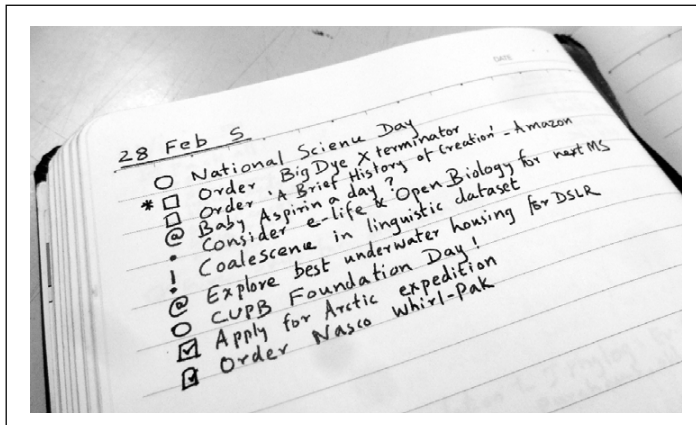 DATE
28 Feb S
○ National Science Day
* □ Order BigDye Xterminator
□ Order 'A Brief History of Creation' - Amazon
@ Baby Aspirin a day?
• Consider e-life & Open Biology for next MS
! Coalescence in linguistic dataset
@ Explore best underwater housing for DSLR
○ CUPB Foundation Day!
☑ Apply for Arctic expedition
☑ Order Nasco Whirl-Pak